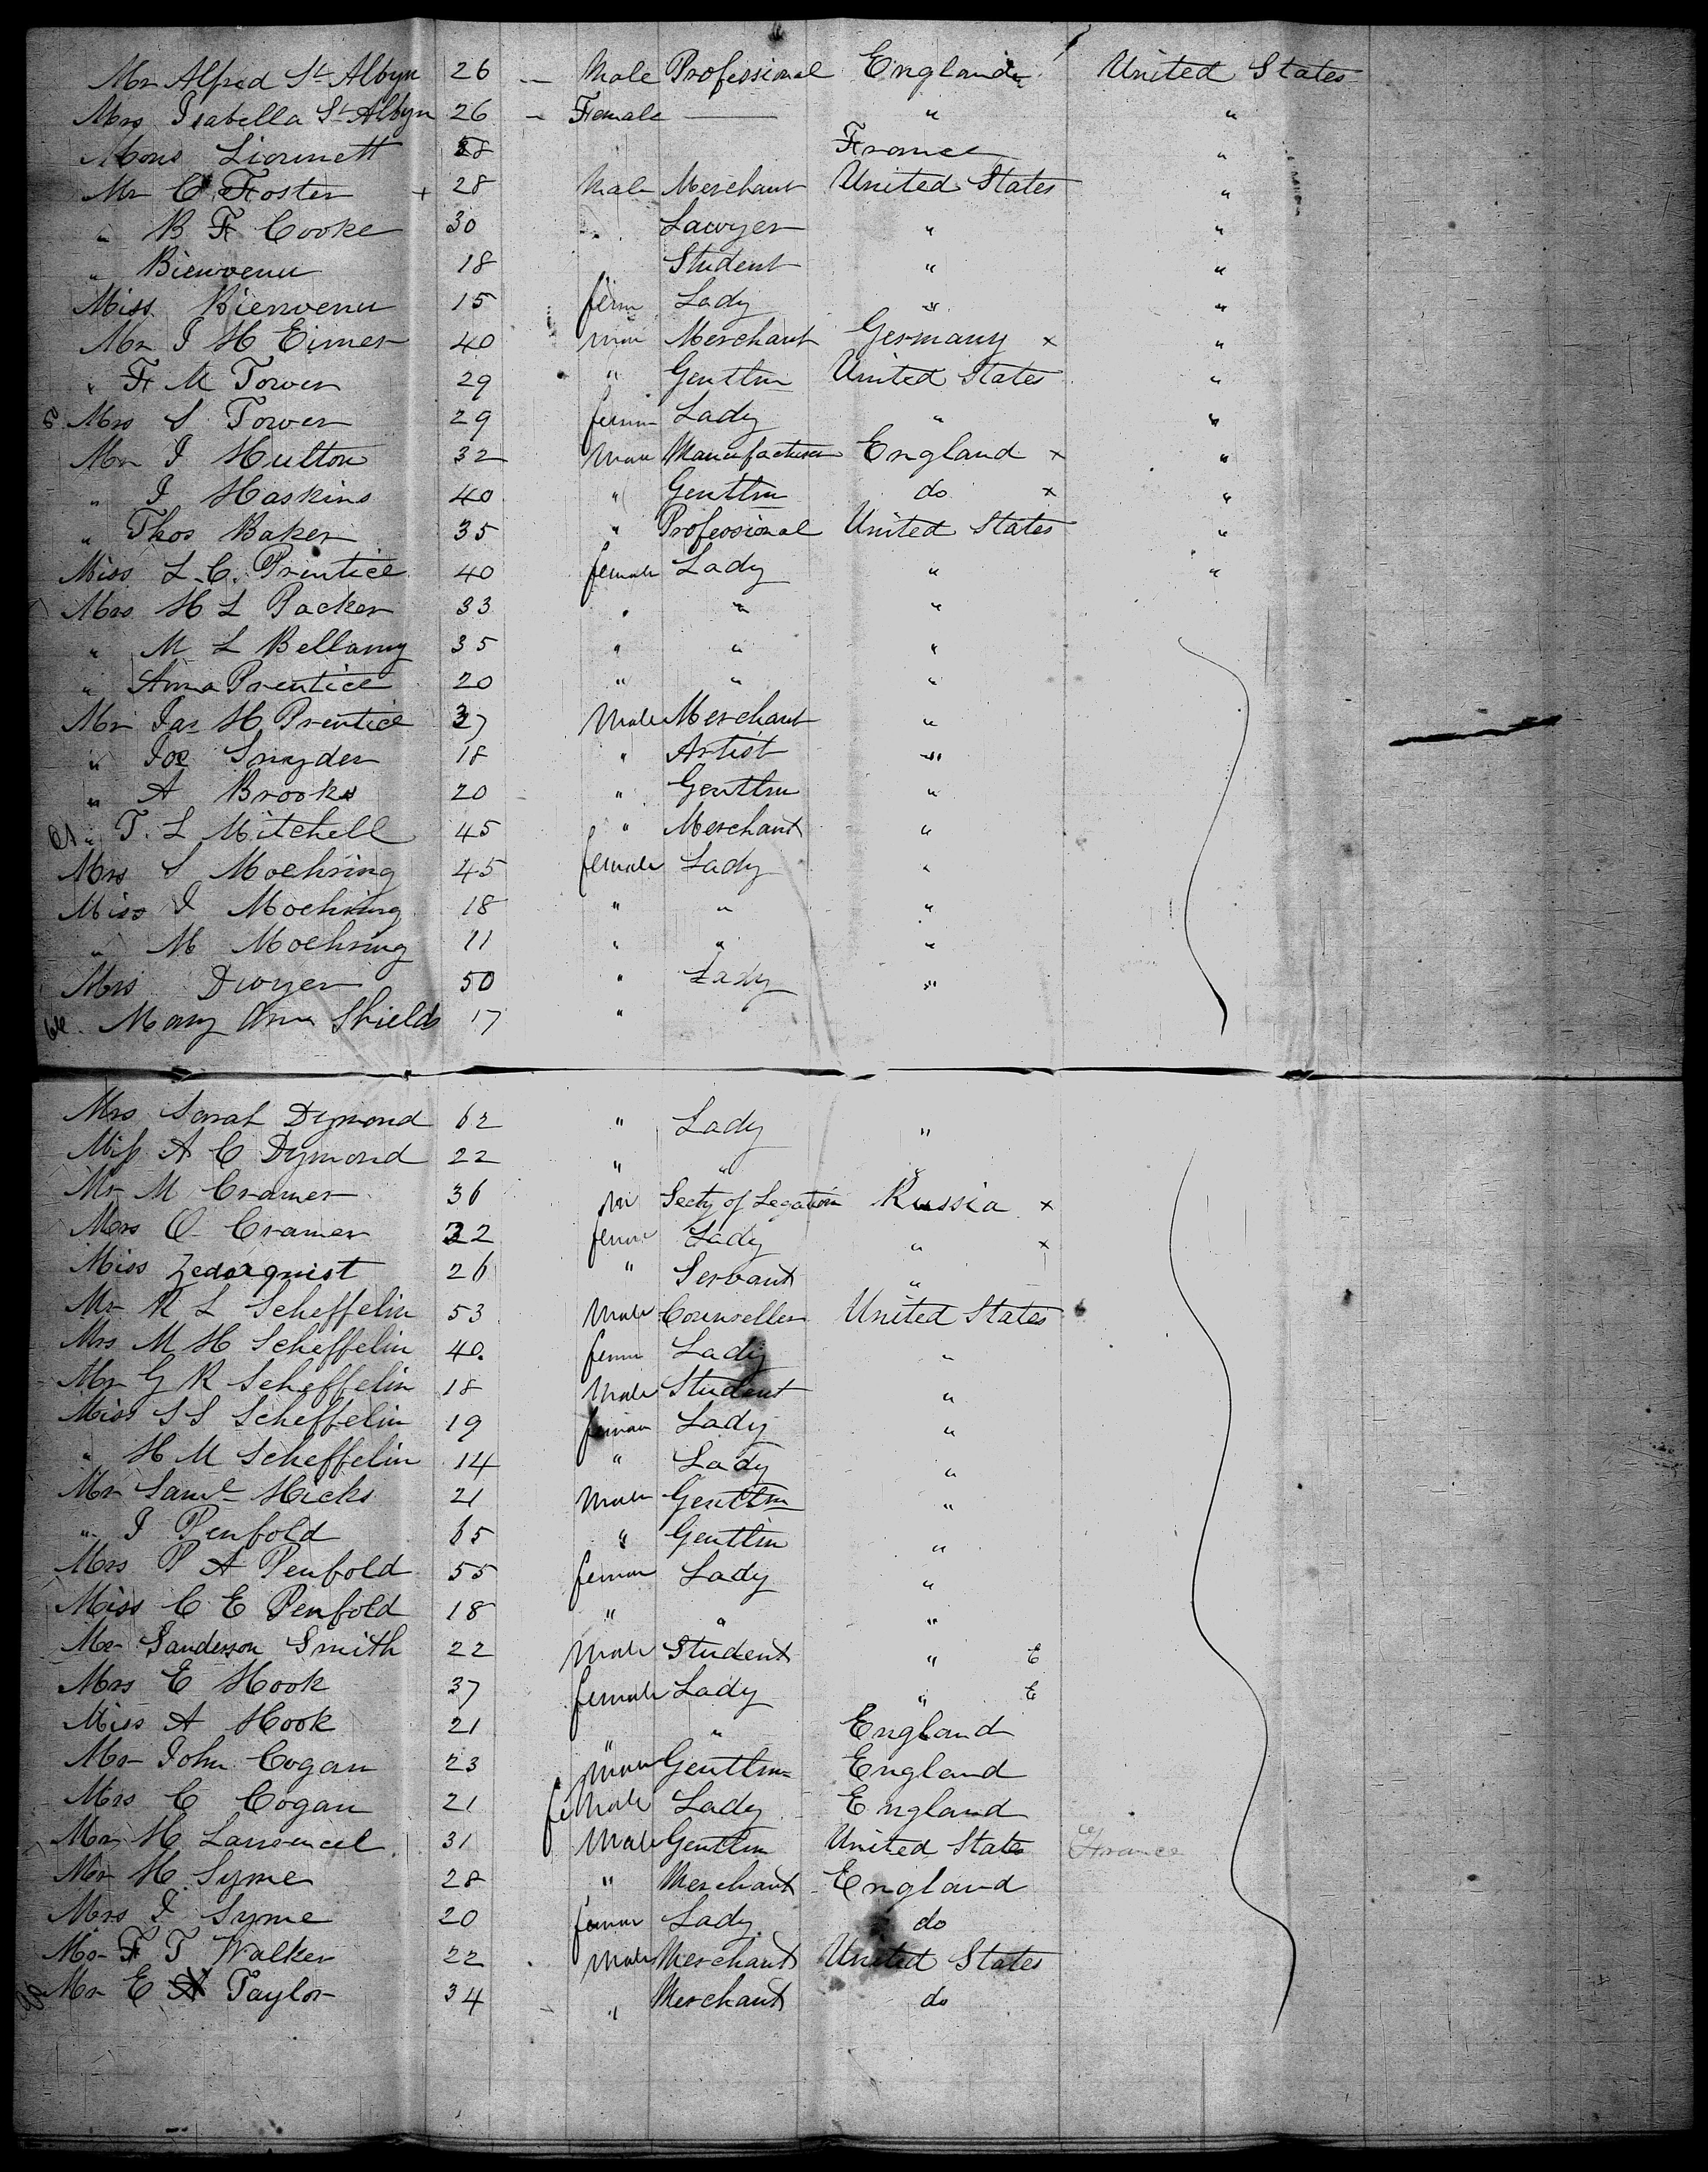 Mr Alfred St Albyn 26 — Male Professional England United States
Mrs Isabella St Albyn 26 — Female — " "
Mons Liounett 38 France "
Mr C Foster + 28 Male Merchant United States "
" B F Cooke 30 " Lawyer " "
" Bienvenu 18 Student " "
Miss Bienvenu 15 fem Lady " "
Mr J H Eimer 40 Merchant Germany x "
" F M Tower 29 " Gentlm United States "
Mrs S Tower 29 fem Lady " "
Mr J Hutton 32 Manufacturer England x "
" J Haskins 40 " Gentlm do x "
" Thos Baker 35 " Professional United States "
Miss L. C. Prentice 40 female Lady " "
Mrs H L Packer 33 " " "
" M L Bellamy 35 " " "
" Anna Prentice 20 " " "
Mr Jas H Prentice 37 Male Merchant "
" Joe Snyder 18 " Artist "
" A Brooks 20 " Gentlm "
" T. L Mitchell 45 " Merchant "
Mrs S Moehring 45 female Lady "
Miss J Moehring 18 " " "
" M Moehring 11 " " "
Mrs Dwyer 50 " Lady "
Mary Ann Shields 17 "
Mrs Sarah Dymond 62 " Lady "
Miss A C Dymond 22 " "
Mr M Cramer 36 m Secty of Legation Russia x
Mrs O Cramer 22 fem Lady " x
Miss Zedarquist 26 " Servant "
Mr R L Scheffelin 53 Male Counseller United States
Mrs M H Scheffelin 40. fem Lady "
Mr G R Scheffelin 18 Male Student "
Miss S S Scheffelin 19 Lady "
" H M Scheffelin 14 " Lady "
Mr Saml Hicks 21 Male Gentlm "
" J Penfold 65 " Gentlm "
Mrs P A Penfold 55 Lady "
Miss C E Penfold 18 " " "
Mr Sanderson Smith 22 Male Student " E
Mrs E Hook 37 female Lady " E
Miss A Hook 21 " " England
Mr John Cogan 23 Gentlm England
Mrs C Cogan 21 female Lady England
Mr H 31 Male Gentlm United States France
Mr H Syme 28 " Merchant England
Mrs J Syme 20 Lady do
Mr F T Walker 22 Male Merchant United States
Mr E A Taylor 34 " Merchant do